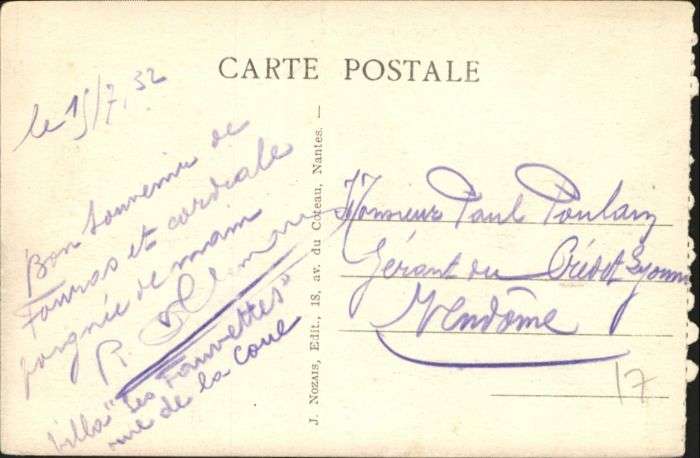 CARTE POSTALE
le 15/7. 32
Bon Souvenir de
Fouras et cordiale
poignée de main
R.
Villa "Les Fauvettes"
rue de la Coue
J. Nozais, Edit., 18, av. du Coteau, Nantes. —
Monsieur Paul Poulain
Gérant du Crédit Lyonnais
Vendôme
17